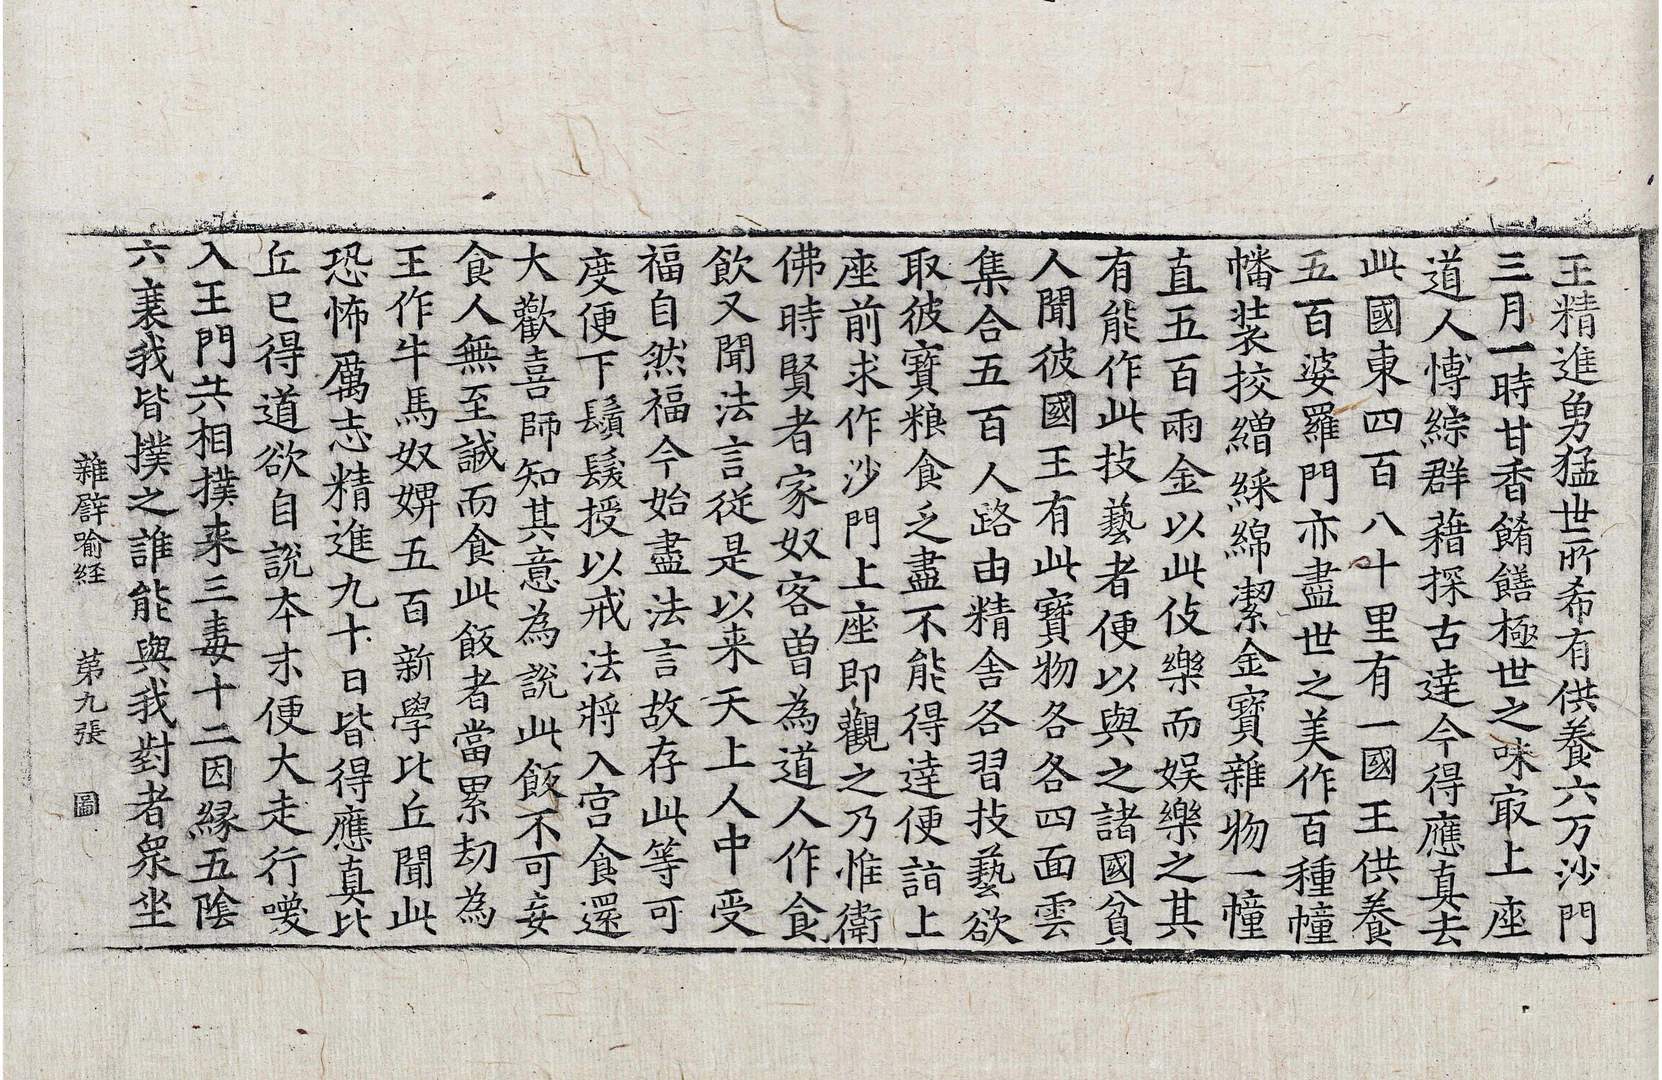 王精進勇猛世所希有供養六万沙門
三月一時甘香餚饍極世之味㝡上座
道人愽綜群藉探古達今得應真去
此國東四百八十里有一國王供養
五百婆羅門亦盡世之美作百種幢
幡裝挍繒綵綿潔金寶雜物一幢
直五百兩金以此伎樂而娛樂之其
有能作此技藝者便以與之諸國貧
人聞彼國王有此寶物各各四面雲
集合五百人路由精舍各習技藝欲
取彼寶粮食乏盡不能得達便詣上
座前求作沙門上座即觀之乃惟衛
佛時賢者家奴客曾為道人作食
飲又聞法言従是以来天上人中受
福自然福今始盡法言故存此等可
度便下鬚髮授以戒法將入宮食還
大歡喜師知其意為說此飯不可妄
食人無至誠而食此飯者當累劫為
王作牛馬奴婢五百新學比丘聞此
恐怖厲志精進九十日皆得應真比
丘已得道欲自說本末便大走行喚
入王門共相撲来三毒十二因緣五陰
六衰我皆撲之誰能與我對者衆坐
雜譬喻経 第九張 圖